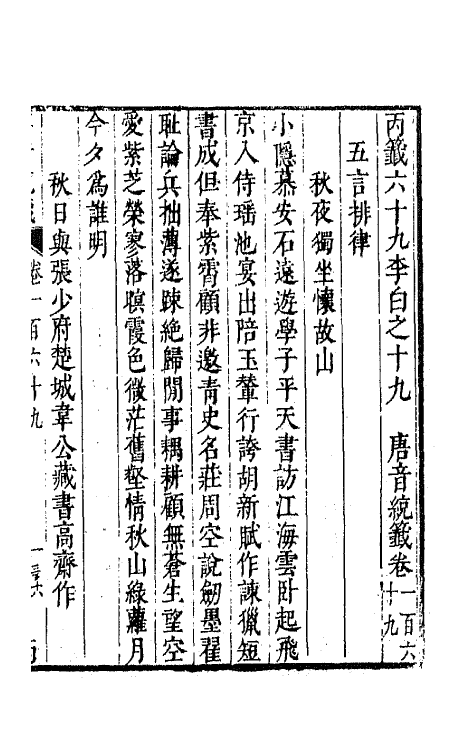 丙籖六十九李白之十九　唐音統籖卷一百六十九
五言排律
秋夜獨坐懷故山
小隱慕安石遠遊學子平天書訪江海雲卧起飛
京入侍瑶池宴出陪玉輦行誇胡新賦作諫獵短
書成但奉紫霄顧非邀青史名莊周空說劒墨翟
耻論兵拙薄遂踈絶歸閒事耦耕顧無蒼生望空
愛紫芝榮寥落暝霞色微茫舊壑情秋山緑蘿月
今夕爲誰明
秋日與張少府楚城韋公藏書高齋作
卷一百六十九